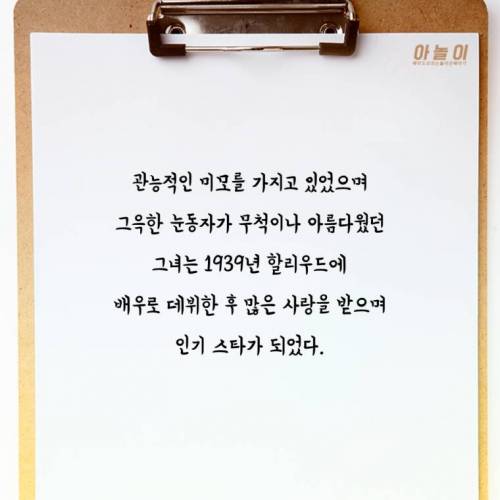 아놀이
관능적인 미모를 가지고 있었으며
그윽한 눈동자가 무척이나 아름다웠던
그녀는 1939년 할리우드에
배우로 데뷔한 후 많은 사랑을 받으며
인기 스타가 되었다.